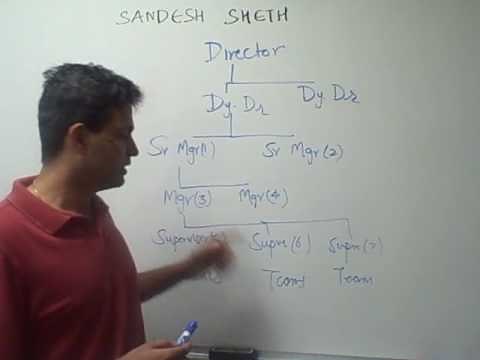 SANDESH SHETH
Director
Dy. Dr Dy. Dr
Sr Mgr(1) Sr Mgr(2)
Mgr(3) Mgr(4)
Supre(6) Supre(7)
Team Team